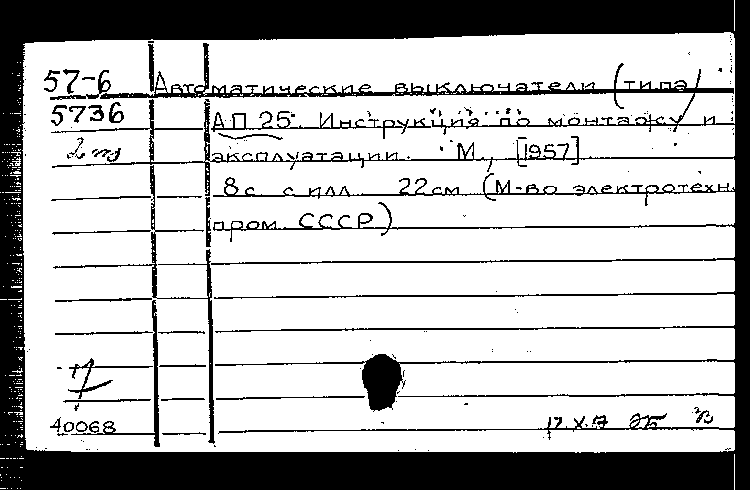 57-6 Автоматические выключатели (типа
5736 АП 25. Инструкция по монтажу и
эксплуатации. М., [1957]
8 с. с илл. 22 см (М-во электротехн.
пром. СССР)
40068